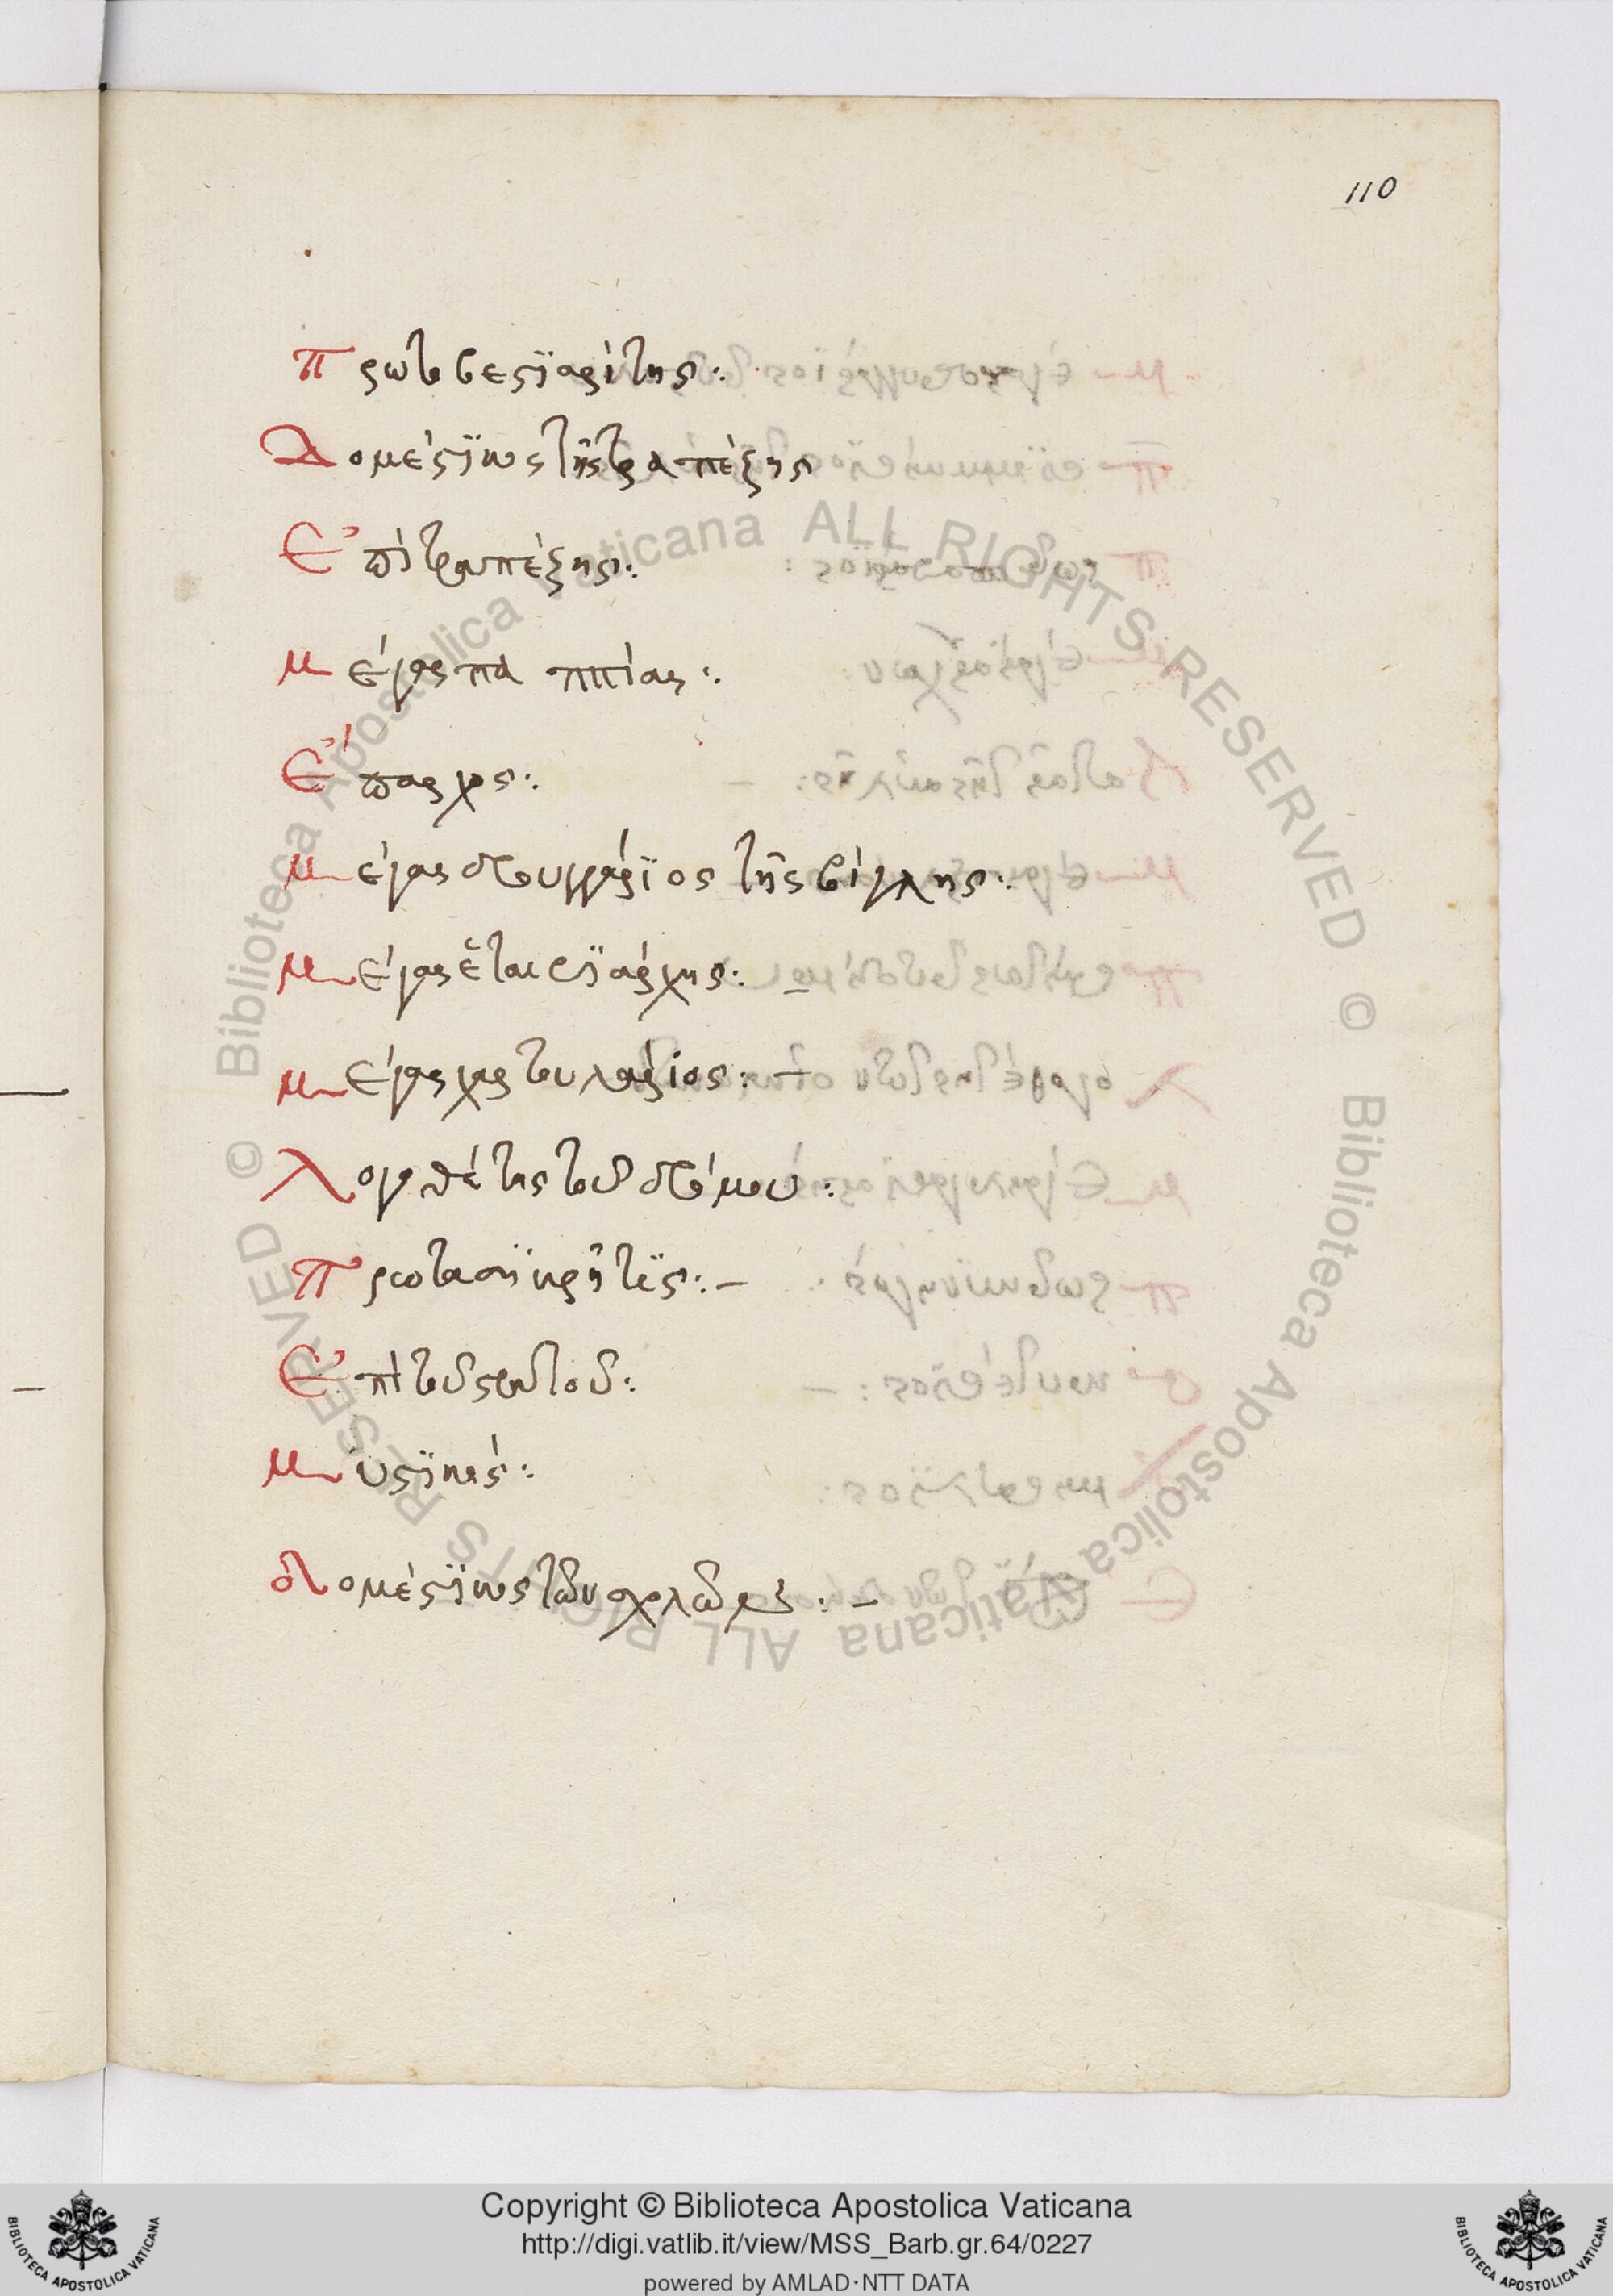 110
Πρωτοβεστϊαρίτης:.
Δομέστϊκος τῆς τραπέζης
Ἐπὶ τραπέζης:.
Μέγας παππίας:.
Ἔπαρχος:.
Μέγας δρουγγάρϊος τῆς βίγλης:.
Μέγας ἑταιρϊάρχης:. –
Μέγας χαρτουλάριος: –
Λογοθέτης τοῦ δρόμου:
Πρωτασηκρῆτϊς: –
Ἐπὶ τοῦ στρατοῦ:
Μυστϊκός:.
δομέστϊκος τῶν σχολῶν: –
© Biblioteca Apostolica Vaticana ALL RIGHTS RESERVED © Biblioteca Apostolica Vaticana ALL RIGHTS RESERVED
Copyright © Biblioteca Apostolica Vaticana
http://digi.vatlib.it/view/MSS_Barb.gr.64/0227
powered by AMLAD·NTT DATA
BIBLIOTECA APOSTOLICA VATICANA
BIBLIOTECA APOSTOLICA VATICANA